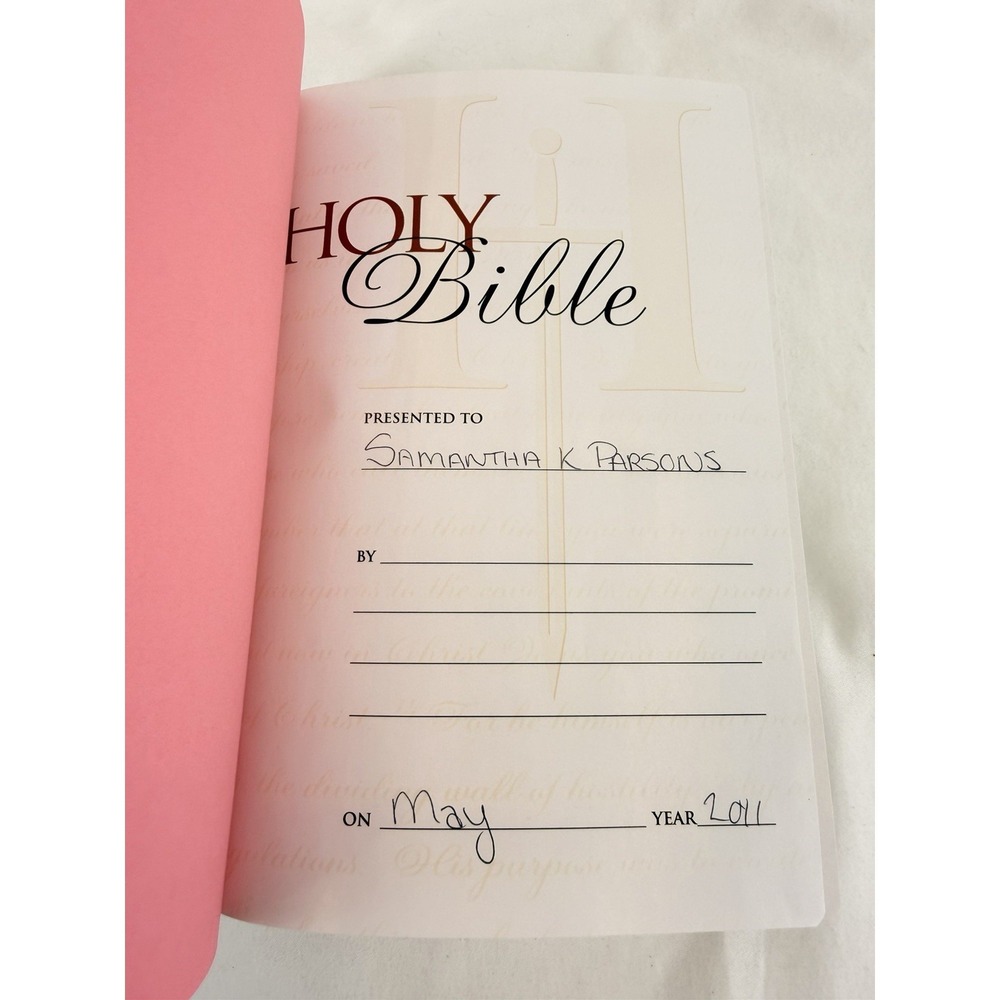 HOLY
Bible
PRESENTED TO
SAMANTHA K PARSONS
BY
ON May YEAR 2011